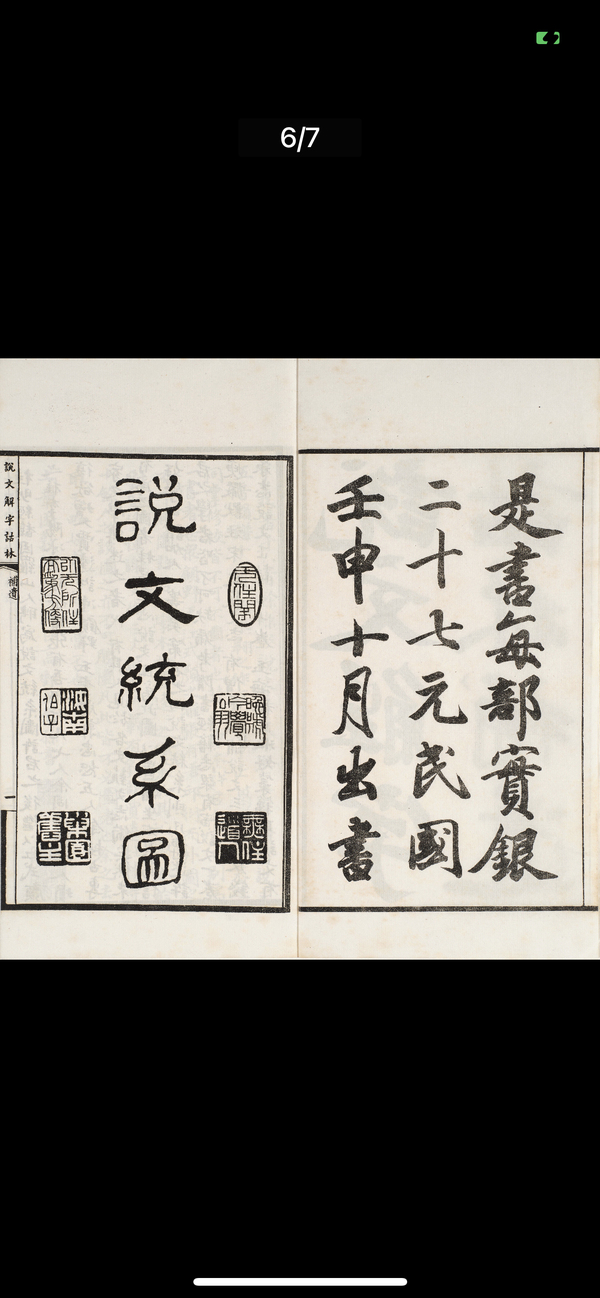 6/7
是書每部實銀
二十七元民國
壬申十月出書
說文統系圖
說文解字詁林
補遺
一